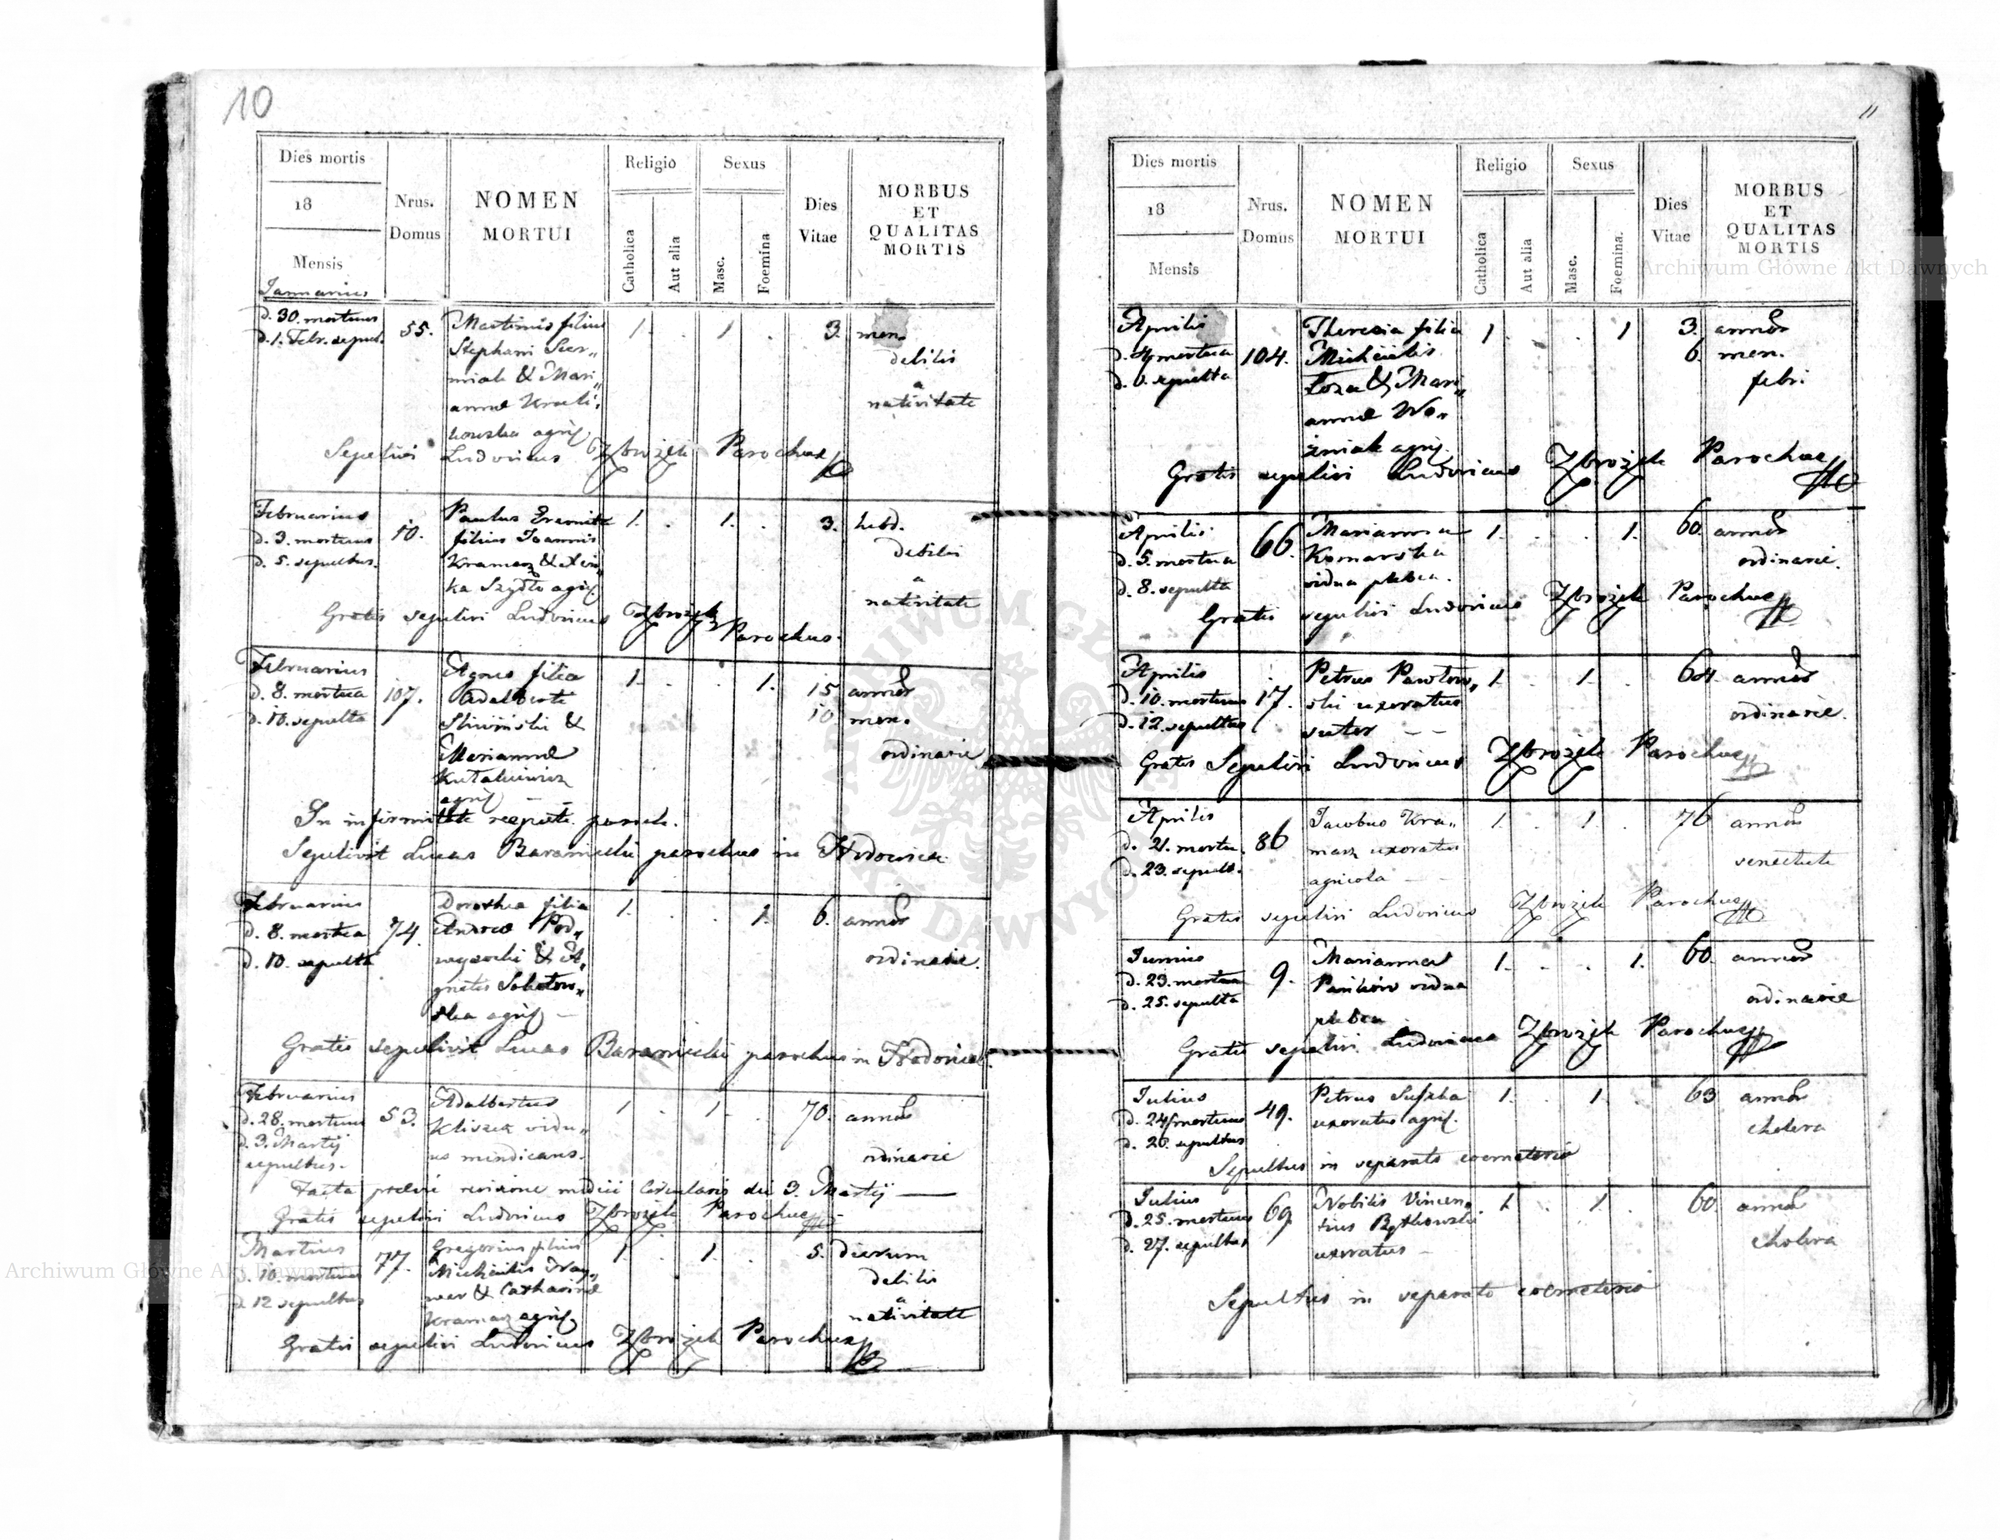 10
Dies mortis
18
Mensis
Januarius
Nrus.
Domus
NOMEN
MORTUI
Religio
Catholica
Aut alia
Sexus
Masc.
Foemina
Dies
Vitae
MORBUS
ET
QUALITAS
MORTIS
d. 30. mortuus 55. Martinus filius 1. . 1. . 3. men.
d. 1. Febr. sepult. Stephani
debilis
& Mari„
a
annae
nativitate
agric.
Sepelivi Ludovicus Zbrożek Parochus
Februarius Paulus 1. . 1. . 3. hebd.
d. 3. mortuus 10. filius Joannis debilis
d. 5. sepultus. Kramarz & a
ka Szydło agric. nativitate
Gratis sepelivi Ludovicus Zbrożek Parochus.
Februarius Agnes filia 1. . . 1. 15 annor
d. 8. mortua 107. Adalberti 10 men.
d. 10. sepulta & ordinarie
Mariannae
agric.
In infirmitate paroch.
Sepelivit Lucas Baraniecki parochus in Hodowica
Februarius Dorothea filia 1. . . 1. 6. annor
d. 8. mortua 74. Andreae Pod„ ordinarie.
d. 10. sepulta & A„
gnetis
ska agric.
Gratis sepelivit Lucas Baraniecki parochus in Hodowica
Februarius Adalbertus 1. . 1. . 70. annor
d. 28. mortuus 53. vidu„
d. 3. Martij us mendicans. ordinarie
sepultus.
Facta revisione medici Circularis die 3. Martij
Gratis sepelivi Ludovicus Zbrożek Parochus
Martius 77. Gregorius filius 1. . 1. . 5. dierum
d. 10. mortuus Michaelis debilis
d. 12 sepultus & Catharinae a
Kramarz agric. nativitate
Gratis sepelivi Ludovicus Zbrożek Parochus
11
Dies mortis
18
Mensis
Nrus.
Domus
NOMEN
MORTUI
Religio
Catholica
Aut alia
Sexus
Masc.
Foemina.
Dies
Vitae
MORBUS
ET
QUALITAS
MORTIS
Aprilis Theresia filia 1 . . 1 3. annor
d. 4 mortua 104. Michaelis 6. men.
d. 6. sepulta Łoza & Mari„ febri
annae Wo„
źniak agric.
Gratis sepelivi Ludovicus Zbrożek Parochus
Aprilis 66. Marianna 1. . . 1. 60. annor
d. 5. mortua Komarska ordinarie.
d. 8. sepulta vidua plebea.
Gratis sepelivi Ludovicus Zbrożek Parochus
Aprilis Petrus Pawłow„ 1. . 1. . 64. annor
d. 10. mortuus 17. ski uxoratus ordinarie.
d. 12. sepultus sutor
Gratis Sepelivi Ludovicus Zbrożek Parochus
Aprilis Jacobus Kra„ 1. . 1. . 76 annor
d. 21. mortu. 86 marz uxoratus senectute
d. 23. sepult. agricola
Gratis sepelivi Ludovicus Zbrożek Parochus
Junius Marianna 1. . . 1. 60. annor
d. 23. mortua 9. vidua ordinarie
d. 25. sepulta plebea
Gratis sepelivi Ludovicus Zbrożek Parochus
Julius Petrus 1. . 1. . 63 annor
d. 24 mortuus 49. uxoratus agric. cholera
d. 26. sepultus
Sepultus in separato coemeterio
Julius Nobilis Vincen„ 1. . 1. . 60. annor
d. 25. mortuus 69. tius cholera
d. 27. sepultus uxoratus
Sepultus in separato coemeterio
Archiwum Główne Akt Dawnych
Archiwum Główne Akt Dawnych
ARCHIWUM GŁÓWNE AKT DAWNYCH